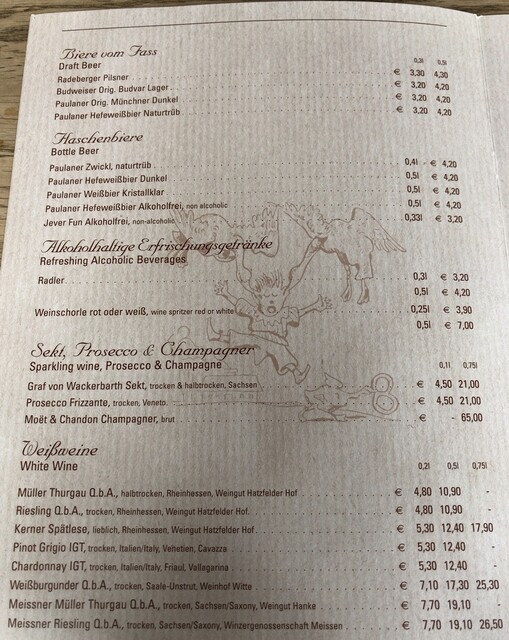 Biere vom Fass
Draft Beer 0,3l 0,5l
Radeberger Pilsner € 3,30 4,30
Budweiser Orig. Budvar Lager € 3,20 4,20
Paulaner Orig. Münchner Dunkel € 3,20 4,20
Paulaner Hefeweißbier Naturtrüb € 3,20 4,20
Flaschenbiere
Bottle Beer
Paulaner Zwickl, naturtrüb 0,4l € 4,20
Paulaner Hefeweißbier Dunkel 0,5l € 4,20
Paulaner Weißbier Kristallklar 0,5l € 4,20
Paulaner Hefeweißbier Alkoholfrei, non alcoholic 0,5l € 4,20
Jever Fun Alkoholfrei, non-alcoholic 0,33l € 3,20
Alkoholhaltige Erfrischungsgetränke
Refreshing Alcoholic Beverages
Radler 0,3l € 3,20
0,5l € 4,20
Weinschorle rot oder weiß, wine spritzer red or white 0,25l € 3,90
0,5l € 7,00
Sekt, Prosecco & Champagner
Sparkling wine, Prosecco & Champagne 0,1l 0,75l
Graf von Wackerbarth Sekt, trocken & halbtrocken, Sachsen € 4,50 21,00
Prosecco Frizzante, trocken, Veneto. € 4,50 21,00
Moët & Chandon Champagner, brut € - 65,00
Weißweine
White Wine 0,2l 0,5l 0,75l
Müller Thurgau Q.b.A., halbtrocken, Rheinhessen, Weingut Hatzfelder Hof € 4,80 10,90 -
Riesling Q.b.A., trocken, Rheinhessen, Weingut Hatzfelder Hof. € 4,80 10,90 -
Kerner Spätlese, lieblich, Rheinhessen, Weingut Hatzfelder Hof € 5,30 12,40 17,90
Pinot Grigio IGT, trocken, Italien/Italy, Venetien, Cavazza € 5,30 12,40 -
Chardonnay IGT, trocken, Italien/Italy, Friaul, Vallagarina € 5,30 12,40 -
Weißburgunder Q.b.A., trocken, Saale-Unstrut, Weinhof Witte € 7,10 17,30 25,30
Meissner Müller Thurgau Q.b.A., trocken, Sachsen/Saxony, Weingut Hanke € 7,70 19,10 -
Meissner Riesling Q.b.A., trocken, Sachsen/Saxony, Winzergenossenschaft Meissen € 7,70 19,10 26,50